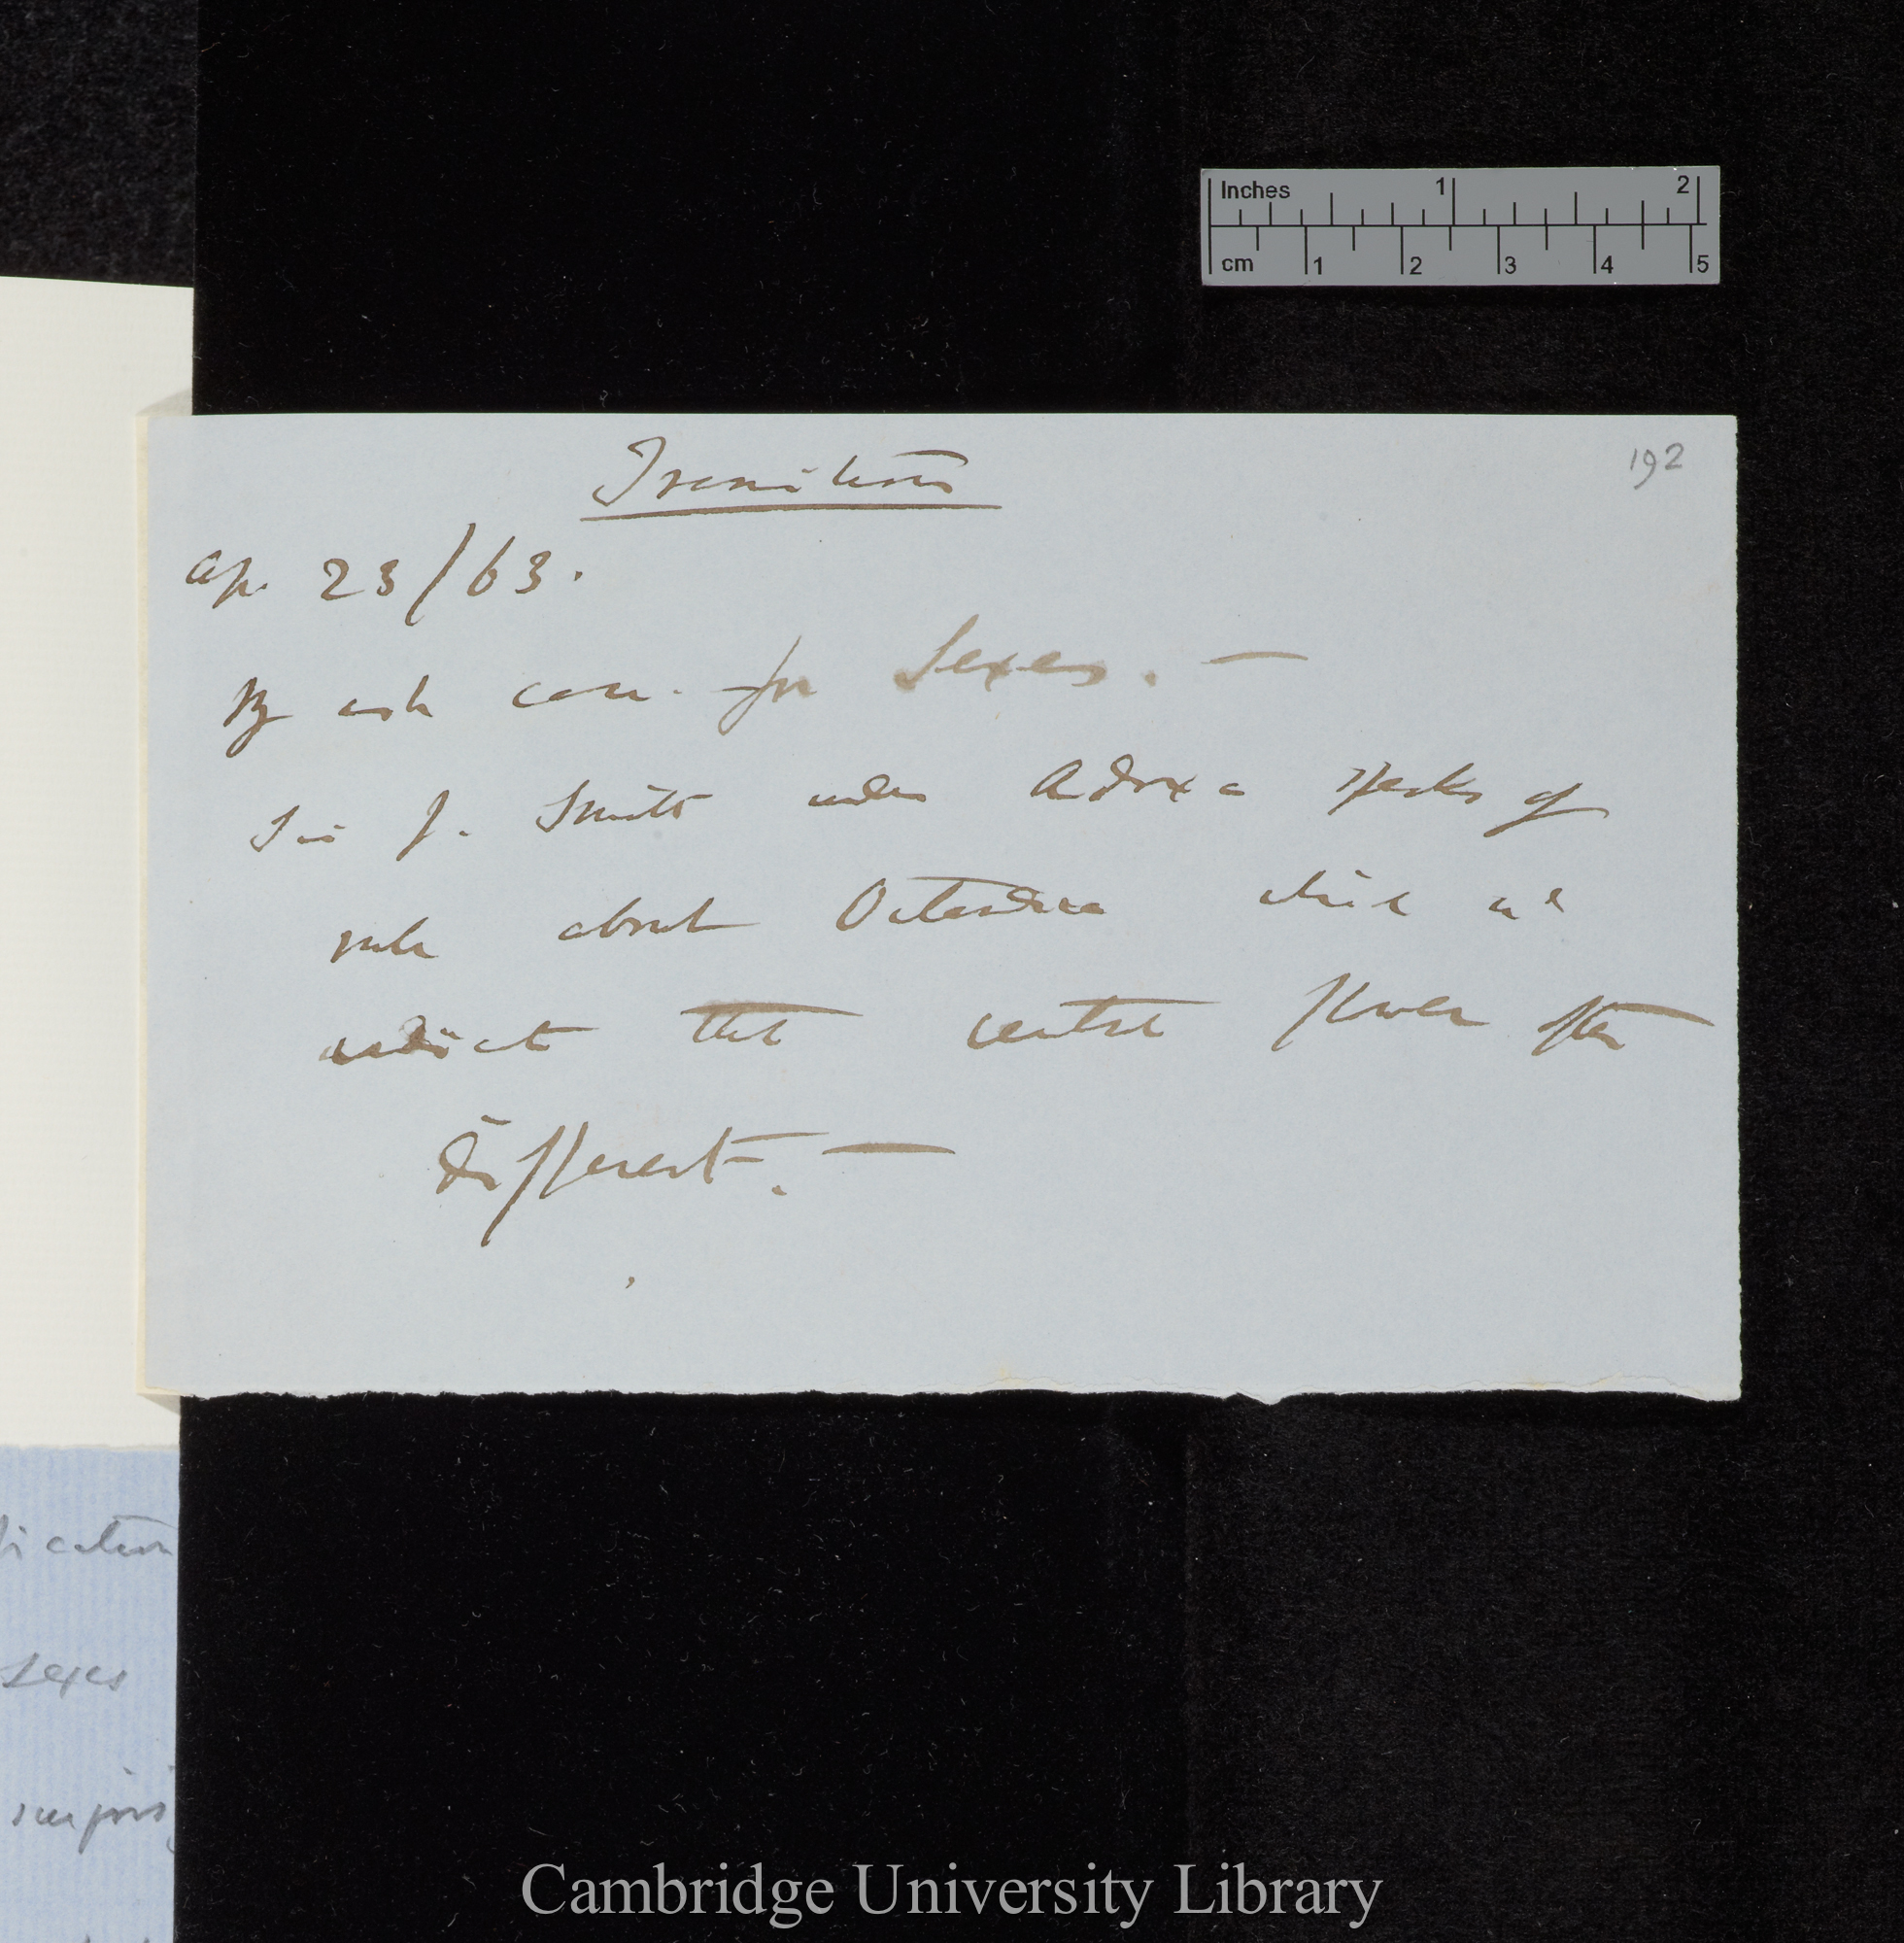 Inches 1 2
cm 1 2 3 4 5
192
Transitions
Ap. 23/63.
ash case for Sexes. —
Sir J. Smith under Adoxa speaks of
rule about Octandria which
indicate that central flower often
different. —
ication
sexes
Cambridge University Library